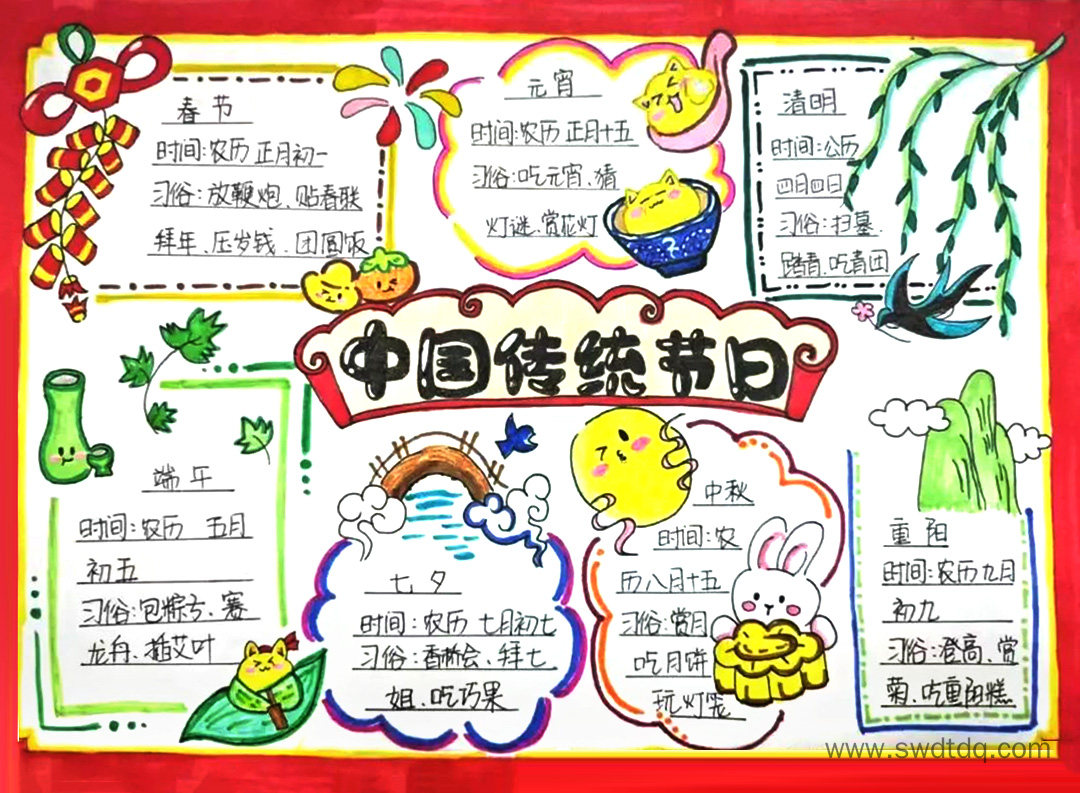 中国传统节日
春节
时间:农历 正月初一
习俗:放鞭炮、贴春联
拜年、压岁钱、团圆饭
元宵
时间:农历 正月十五
习俗:吃元宵、猜
灯谜、赏花灯
清明
时间:公历
四月四日
习俗:扫墓、
踏青、吃青团
端午
时间:农历 五月
初五
习俗:包粽子、赛
龙舟、插艾叶
七夕
时间:农历 七月初七
习俗:香桥会、拜七
姐、吃巧果
中秋
时间:农
历八月十五
习俗:赏月
吃月饼
玩灯笼
重阳
时间:农历九月
初九
习俗:澄高、赏
菊、吃重阳糕
www.swdtdq.com